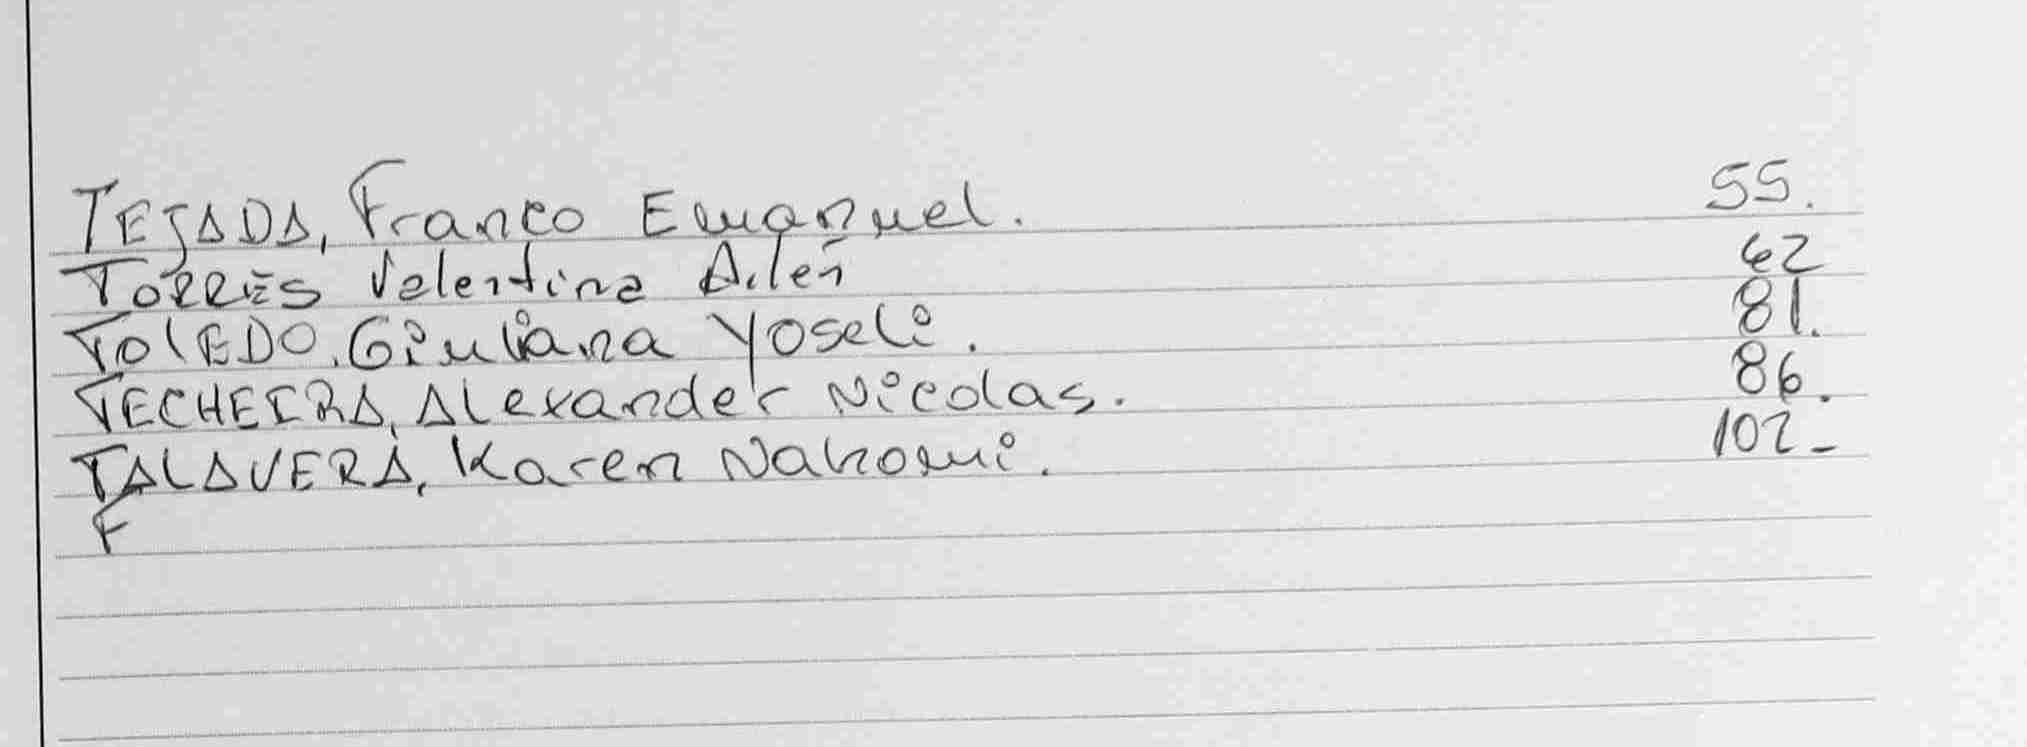 TEJADA, Franco Emanuel. 55.
TORRES Valentina Ailen 62
TOLEDO, Giuliana Yoseli. 81.
TECHEIRA, Alexander Nicolas. 86.
TALAVERA, Karen Nahomi. 102-
F